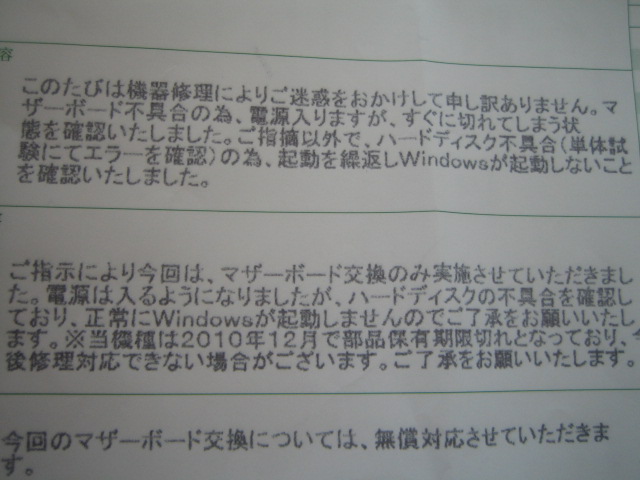 容
このたびは機器修理によりご迷惑をおかけして申し訳ありません。マ
ザーボード不具合の為、電源入りますが、すぐに切れてしまう状
態を確認いたしました。ご指摘以外で、ハードディスク不具合(単体試
験にてエラーを確認)の為、起動を繰返しWindowsが起動しないこと
を確認いたしました。
ご指示により今回は、マザーボード交換のみ実施させていただきまし
た。電源は入るようになりましたが、ハードディスクの不具合を確認し
ており、正常にWindowsが起動しませんのでご了承をお願いいたし
ます。※当機種は2010年12月で部品保有期限切れとなっており、今
後修理対応できない場合がございます。ご了承をお願いいたします。
今回のマザーボード交換については、無償対応させていただきま
す。